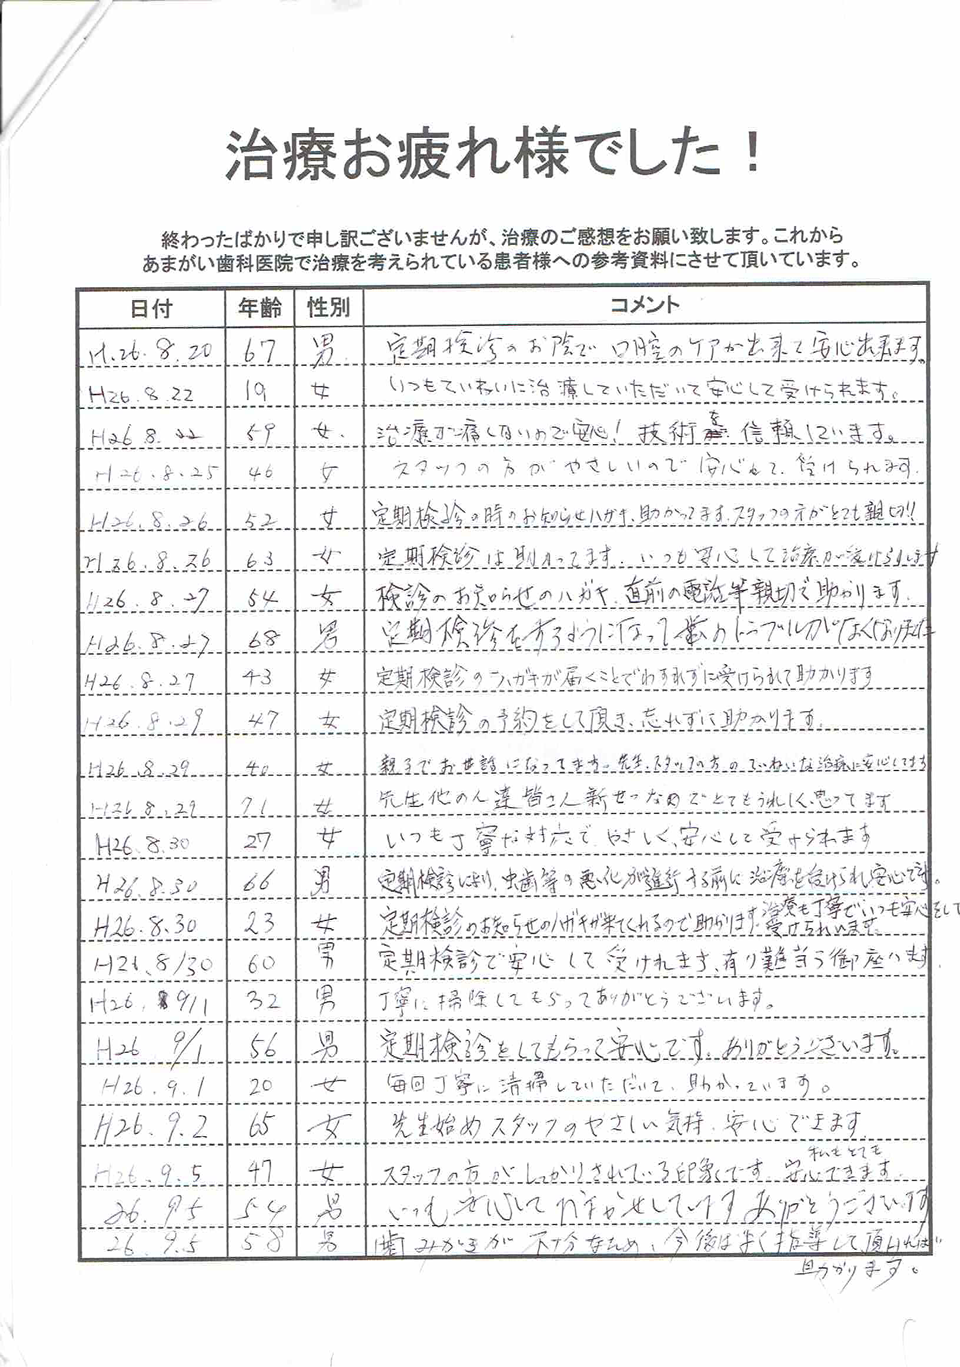 治療お疲れ様でした！
終わったばかりで申し訳ございませんが、治療のご感想をお願い致します。これから
あまがい歯科医院で治療を考えられている患者様への参考資料にさせて頂いています。
日付 年齢 性別 コメント
H.26.8.20 67 男 定期検診のお陰で口腔のケアが出来て安心出来ます。
H26.8.22 19 女 いつもていねいに治療していただいて安心して受けられます。
H26.8.22 59 女 治療が痛くないので安心！技術を信頼しています。
H26.8.25 46 女 スタッフの方がやさしいので安心して、受けられます。
H26.8.26 52 女 定期検診の時のお知らせハガキ、助かってます。スタッフの方がとても親切!!
H.26.8.26 63 女 定期検診は助かってます。いつも安心して治療が受けられます
H26.8.27 54 女 検診のお知らせのハガキ、直前の電話等親切で助かります。
H26.8.27 68 男 定期検診をするようになって歯のトラブルがなくなりました
H26.8.27 43 女 定期検診のハガキが届くことでわすれずに受けられて助かります
H26.8.29 47 女 定期検診の予約をして頂き、忘れずに助かります。
H26.8.29 40 女 親子でお世話になってます。先生、スタッフの方のていねいな治療に安心してます
H26.8.29 71 女 先生他の人達皆さん親せつなのでとてもうれしく思ってます
H26.8.30 27 女 いつも丁寧な対応で、やさしく、安心して受けられます
H26.8.30 66 男 定期検診により、虫歯等の悪化が進行する前に治療を受けられ安心です。
H26.8.30 23 女 定期検診のお知らせのハガキが来てくれるので助かります。治療も丁寧でいつも安心して
受けられています。
H26.8/30 60 男 定期検診で安心して受けれます、有り難う御座います。
H26. 9/1 32 男 丁寧に掃除してもらってありがとうございます。
H26 9/1 56 男 定期検診をしてもらって安心です。ありがとうございます。
H26.9.1 20 女 毎回丁寧に清掃していただいて、助かっています。
H26.9.2 65 女 先生始めスタッフのやさしい気持、安心できます
H26.9.5 47 女 スタッフの方がしっかりされている印象です。私もとても
安心できます。
26.9.5 54 男 いつも安心しておまかせしています ありがとうございます
26.9.5 58 男 歯みがきが不十分なため、今後は指導して頂ければ
助かります。